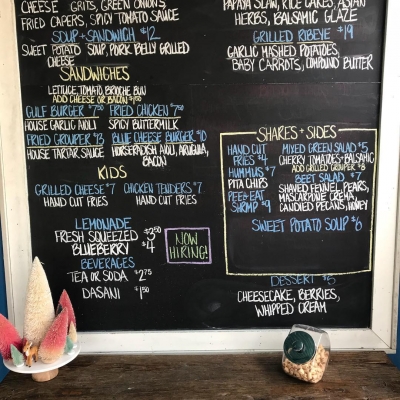 CHEESE GRITS, GREEN ONIONS,
FRIED CAPERS, SPICY TOMATO SAUCE
SOUP + SANDWICH $12
SWEET POTATO SOUP, PORK BELLY GRILLED
CHEESE
SANDWICHES
LETTUCE, TOMATO, BRIOCHE BUN
ADD CHEESE OR BACON $1.50
GULF BURGER $7.50 FRIED CHICKEN $7.50
HOUSE GARLIC AIOLI SPICY BUTTERMILK
FRIED GROUPER $13 BLUE CHEESE BURGER $10
HOUSE TARTAR SAUCE HORSERADISH AIOLI, ARUGULA,
BACON
KIDS
GRILLED CHEESE $7 CHICKEN TENDERS $7
HAND CUT FRIES HAND CUT FRIES
LEMONADE
FRESH SQUEEZED $3.50
BLUEBERRY $4
BEVERAGES
TEA OR SODA $2.75
DASANI $1.50
NOW
HIRING!
PAPAYA SLAW, RICE CAKES, ASIAN
HERBS, BALSAMIC GLAZE
GRILLED RIBEYE $19
GARLIC MASHED POTATOES,
BABY CARROTS, COMPOUND BUTTER
SHARES + SIDES
HAND CUT
FRIES $4
HUMMUS $7
PITA CHIPS
PEEL & EAT
SHRIMP $9
MIXED GREEN SALAD $5
CHERRY TOMATOES + BALSAMIC
ADD GRILLED GROUPER $8
BEET SALAD $7
SHAVED FENNEL, PEARS,
MASCARPONE CREMA,
CANDIED PECANS, HONEY
SWEET POTATO SOUP $6
DESSERT $5
CHEESECAKE, BERRIES,
WHIPPED CREAM